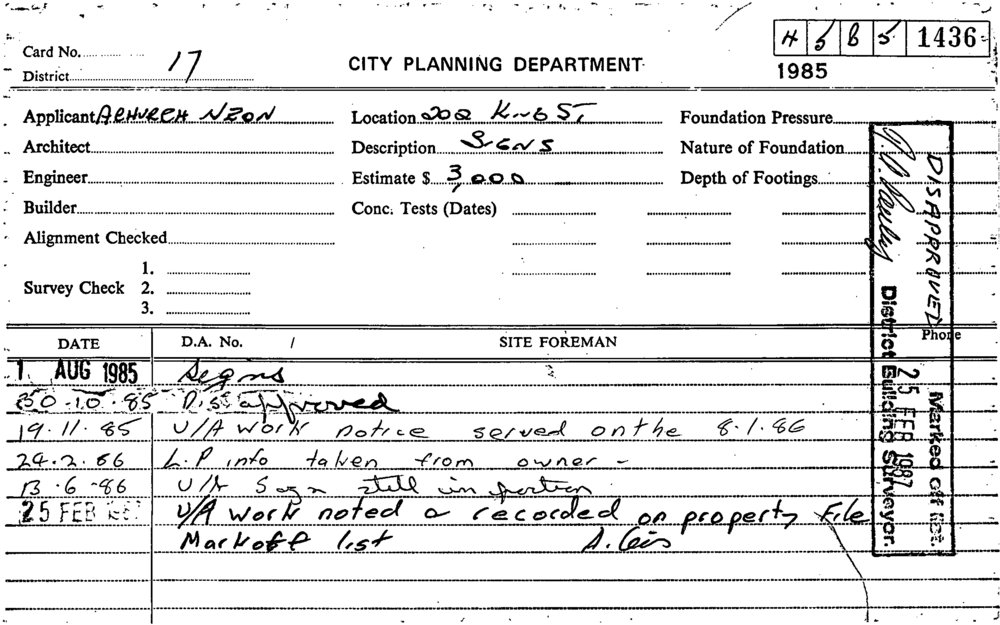 Card No. 17
District
CITY PLANNING DEPARTMENT
H 5 B 5 1436
1985
Applicant ACHURCH NEON
Location 202 KING ST,
Foundation Pressure
Architect
Description SIGNS
Nature of Foundation
Engineer
Estimate $ 3,000
Depth of Footings
Builder
Conc. Tests (Dates)
Alignment Checked
1.
Survey Check 2.
3.
DATE
D.A. No. /
SITE FOREMAN
Phone
1 AUG 1985 Signs
30.10.85 Disapproved
19.11.85 U/A Work notice served on the 8.1.86
24.2.86 L.P info taken from owner -
13.6.86 U/A Sign still in
25 FEB 1987 U/A work noted & recorded on property File
Markoff list
DISAPPROVED
District Building Surveyor.
25 FEB 1987
Marked off list.